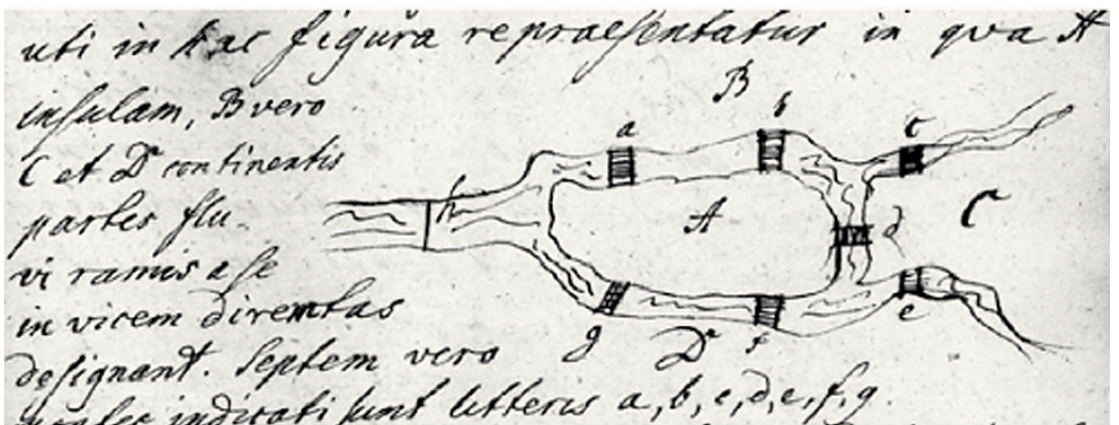 uti in hac figura repraesentatur in qva A
insulam, B vero
C et D continentis
partes flu-
vi ramis a se
in vicem diremtas
designant. Septem vero
pontes indicati sunt litteris a, b, c, d, e, f, g.
B
a
b
c
h
A
d
C
g
D
f
e